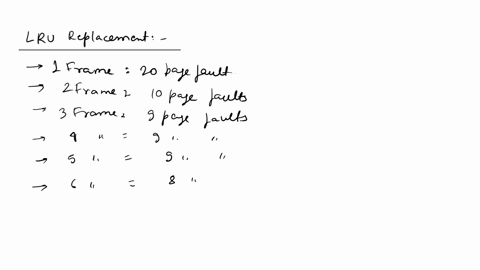 LRU Replacement:-
→ 1 Frame : 20 page fault
→ 2 Frame = 10 page faults
→ 3 Frame = 9 page faults
→ 4 " = 9 " "
→ 5 " = 9 " "
→ 6 " = 8 "